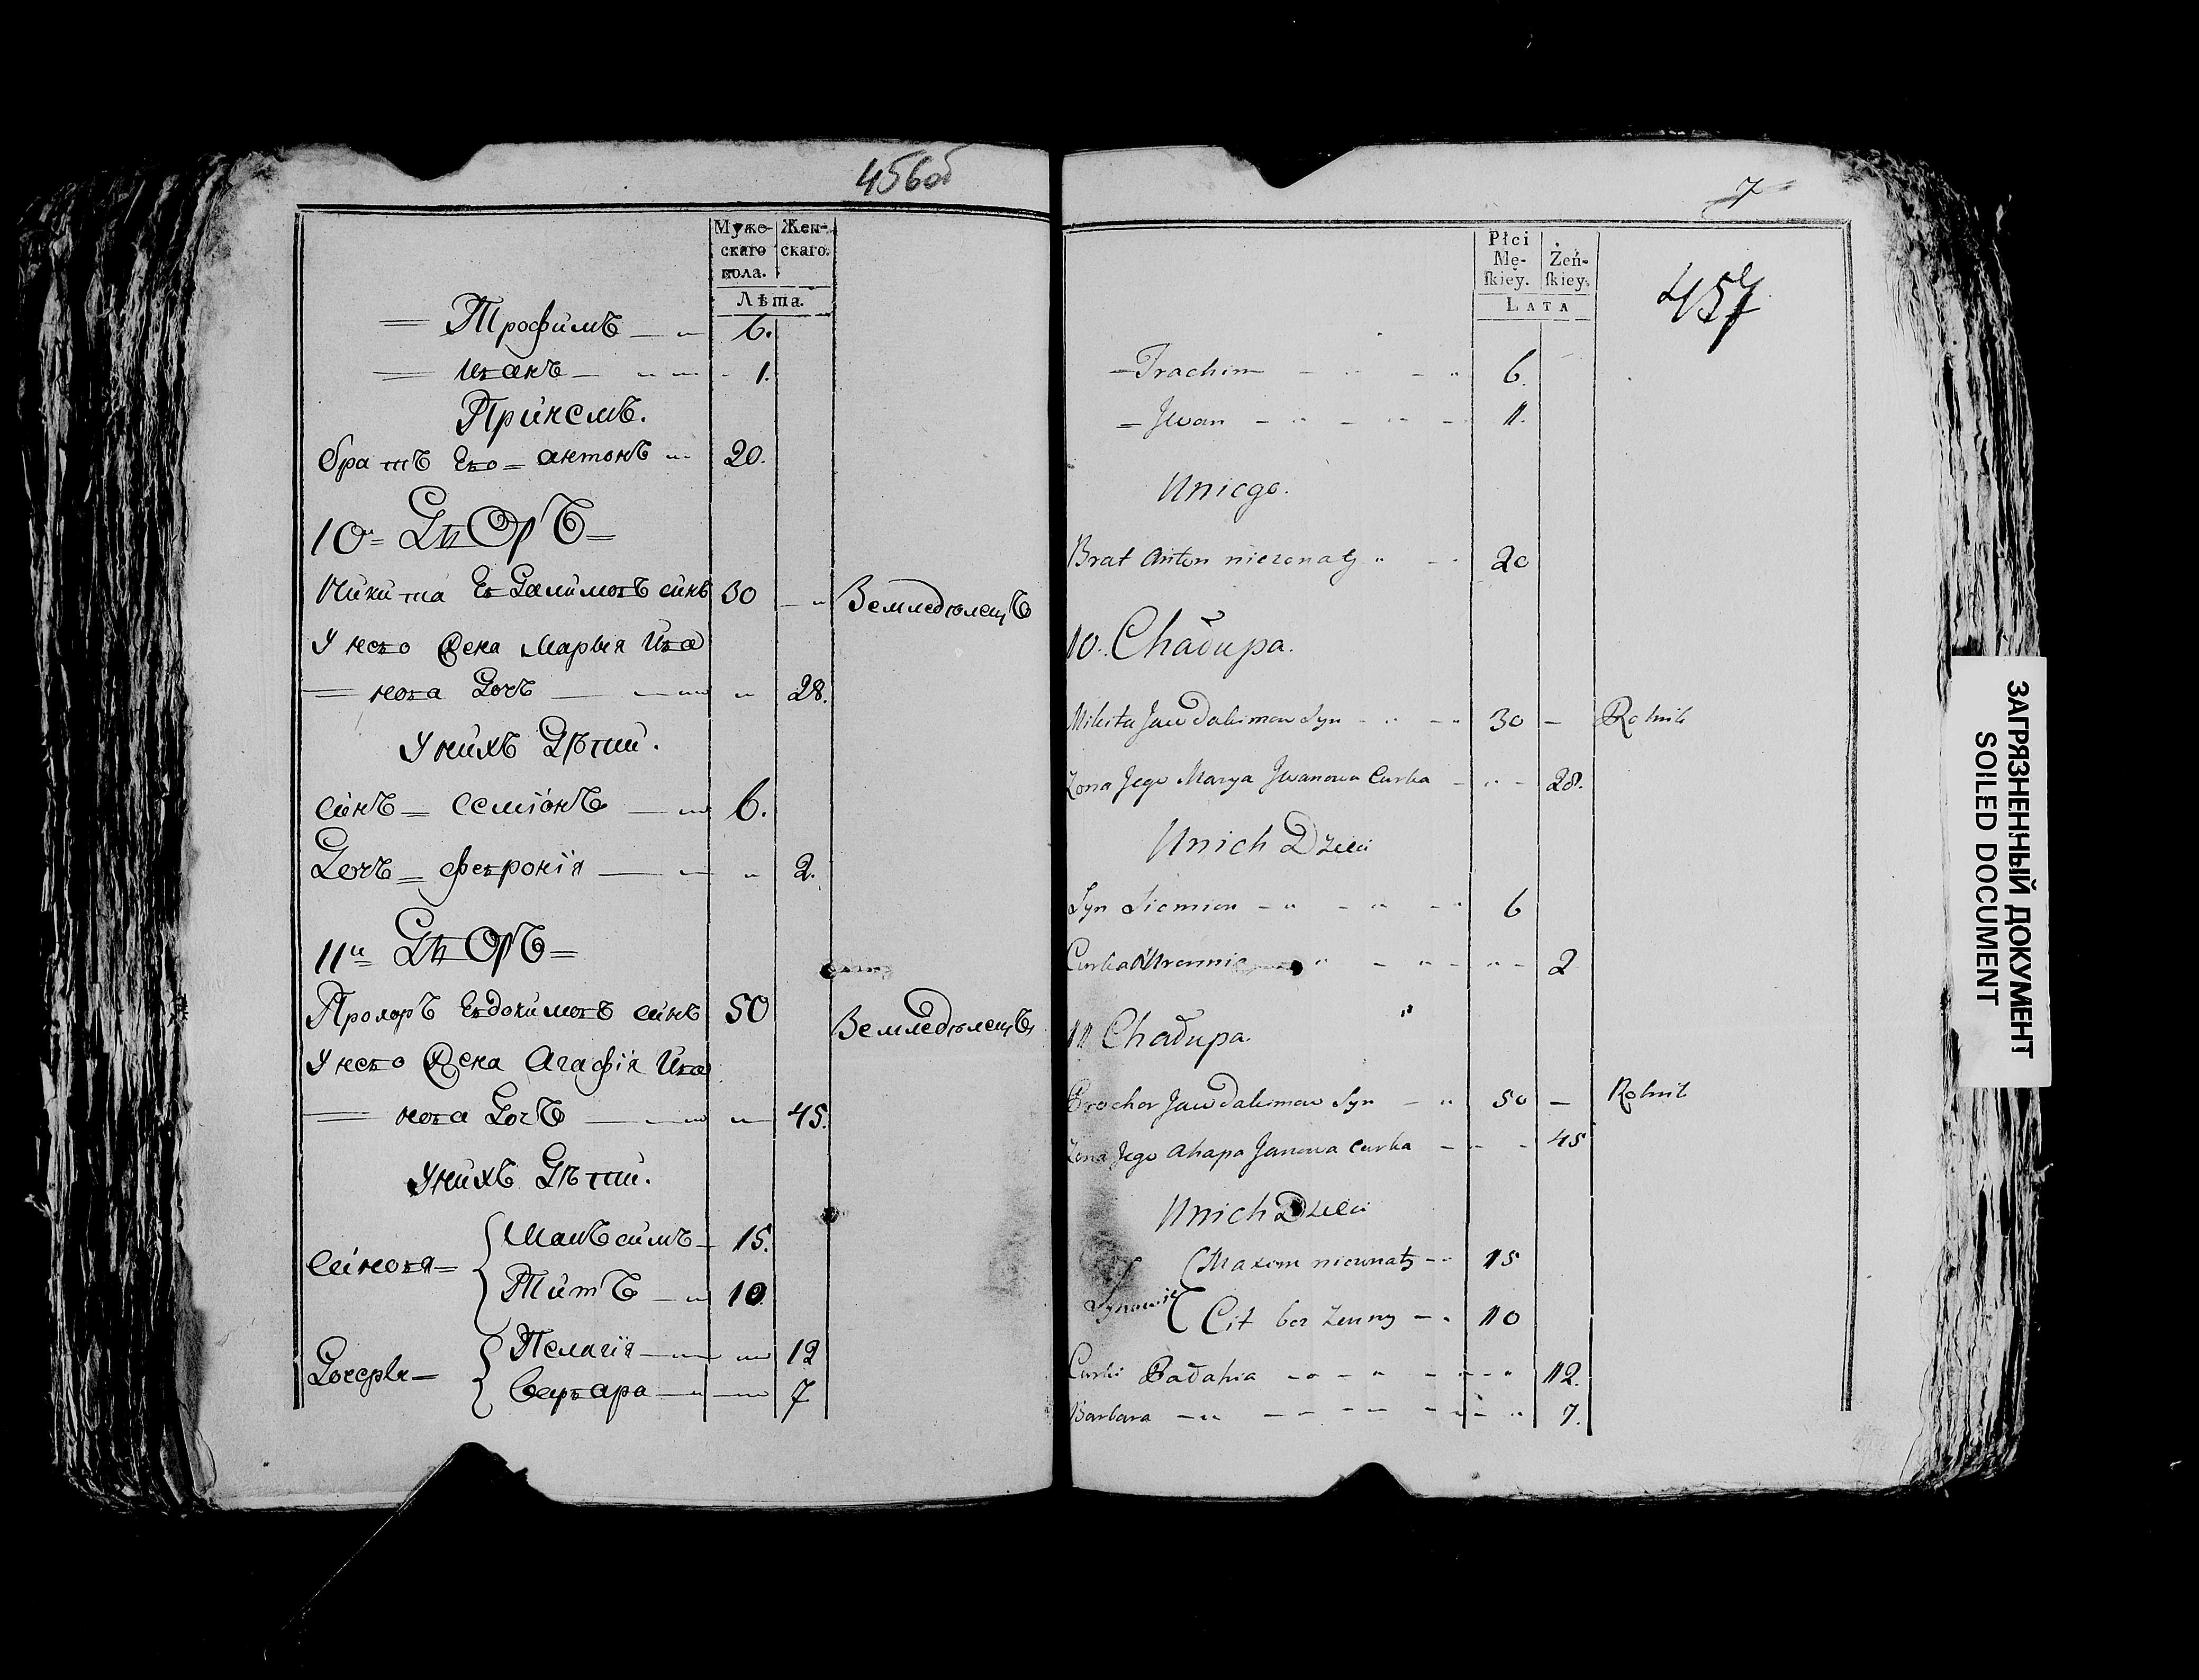 456об
Муже-
скаго
пола.
Жен-
скаго.
Лѣта.
= Трофимъ 6.
= иванъ 1.
При немъ.
братъ Его = антонъ 20.
10- Дворъ
Никита Евдакимовъ синъ 30 Земледѣлецъ
У него Жена Марыя Ива
= нова Дочъ 28.
У нихъ Дѣти.
синъ = семіонъ 6.
Дочъ = февронія 2.
11й Дворъ
Прохоръ Евдокимовъ синъ 50 Земледѣлецъ
У него Жена Агафія Ива
= нова Дочъ 45.
У нихъ Дѣти.
синовя = Макъсимъ 15.
Титъ 10
Дочери = Пелагія 12
варвара 7
7
Płci
Mę-
ſkiey.
Żeń-
ſkiey.
LATA
457
= Trachim 6.
= Jwan 1.
Uniego.
Brat Anton niezonaty 20
10. Chadupa.
Mikita Jawdakimow Syn 30 – Rolnik
Zona Jego Marya Jwanowa Curka 28.
Unich Dzieci
Syn Siemion 6
Curka 2
11 Chadupa.
Prochor Jawdakimow Syn 50 – Rolnik
Zona Jego Ahapa Janowa Curka 45
Unich Dzieci
Synowie Maxim niezonaty 15
Cit bez Zenny 10
Curki Badahia 12.
Barbara 7.
ЗАГРЯЗНЕННЫЙ ДОКУМЕНТ
SOILED DOCUMENT